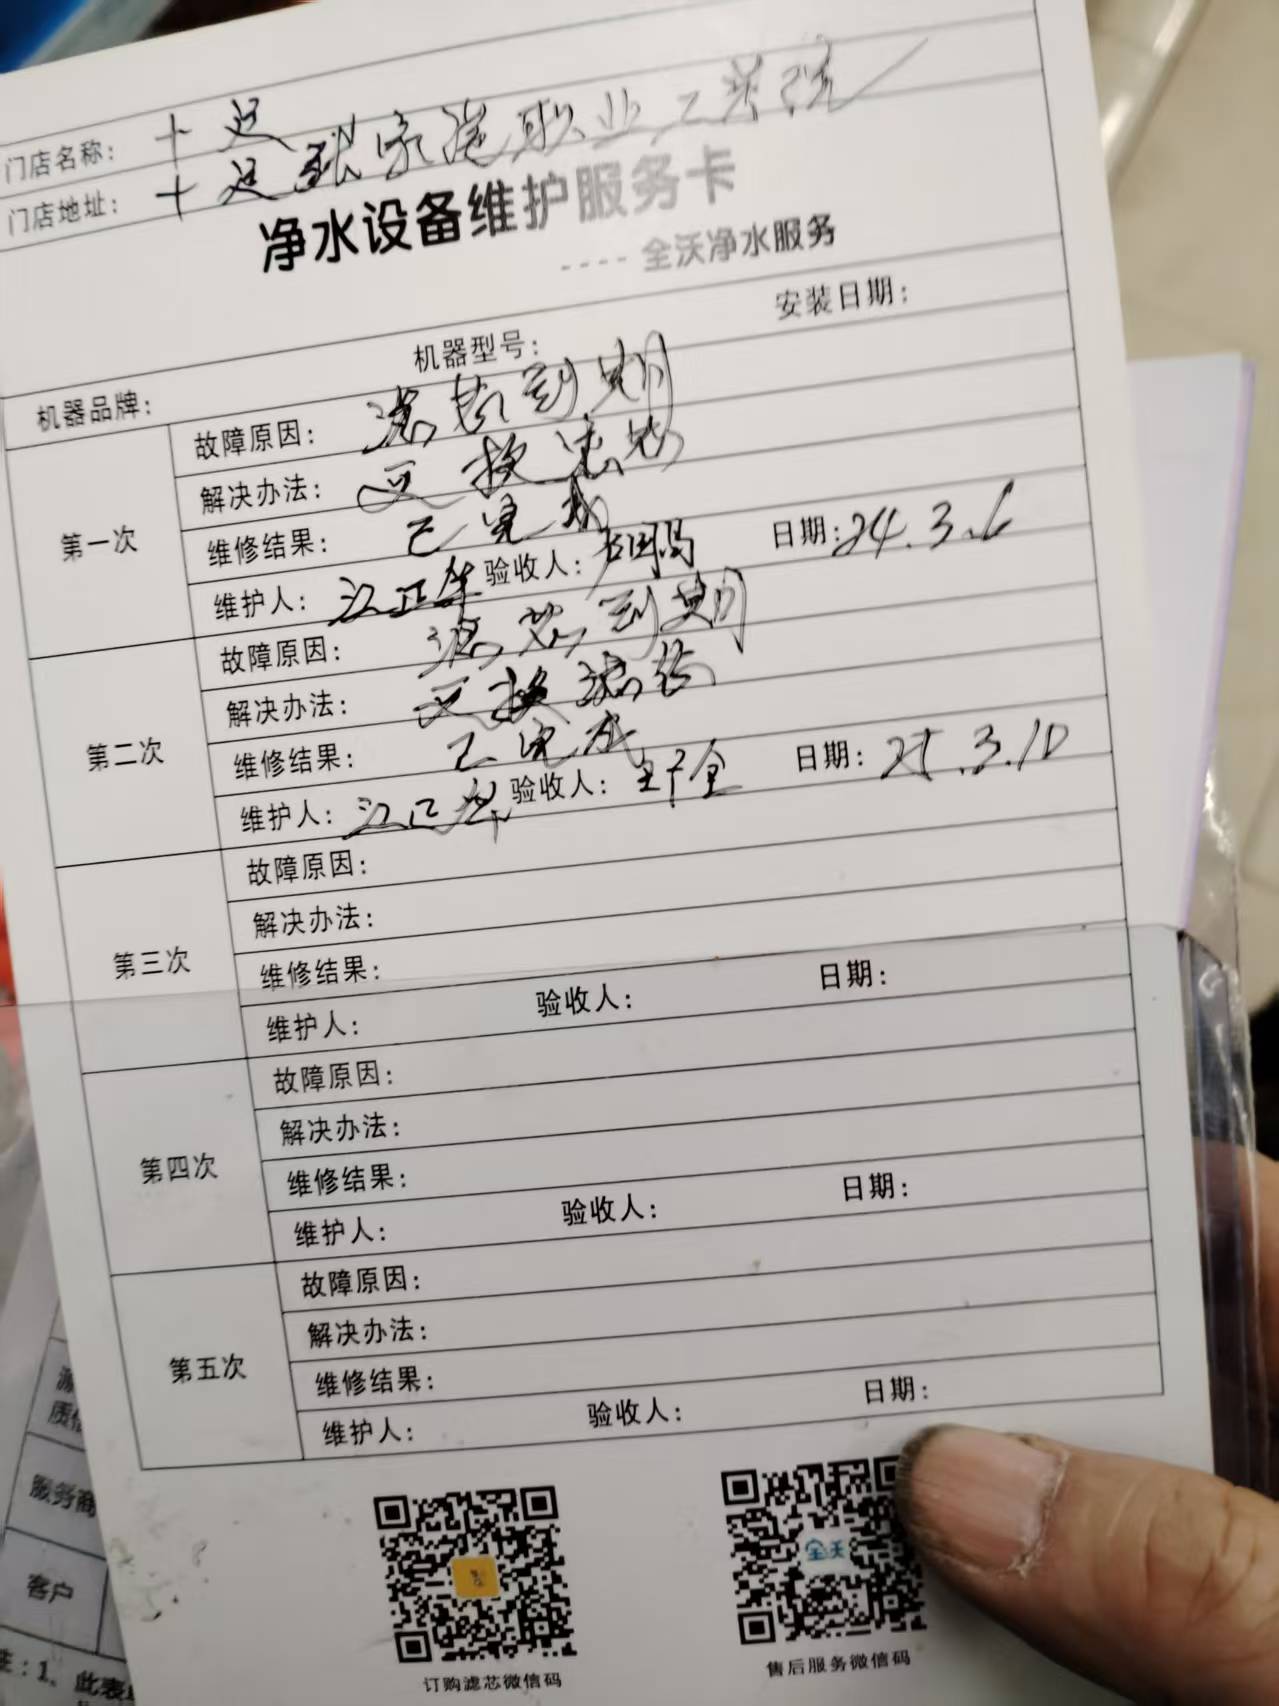 门店名称: 十足
门店地址: 十足张家港职业工学院
净水设备维护服务卡
---- 全沃净水服务
机器品牌: 机器型号: 安装日期:
第一次
故障原因: 滤芯到期
解决办法: 更换滤芯
维修结果: 已完成
维护人: 江卫华 验收人: 日期: 24.3.6
第二次
故障原因: 滤芯到期
解决办法: 更换滤芯
维修结果: 已完成
维护人: 江卫华 验收人: 日期: 25.3.10
第三次
故障原因:
解决办法:
维修结果:
维护人: 验收人: 日期:
第四次
故障原因:
解决办法:
维修结果:
维护人: 验收人: 日期:
第五次
故障原因:
解决办法:
维修结果:
维护人: 验收人: 日期:
订购滤芯微信码
售后服务微信码
服务商
客户
1、此表